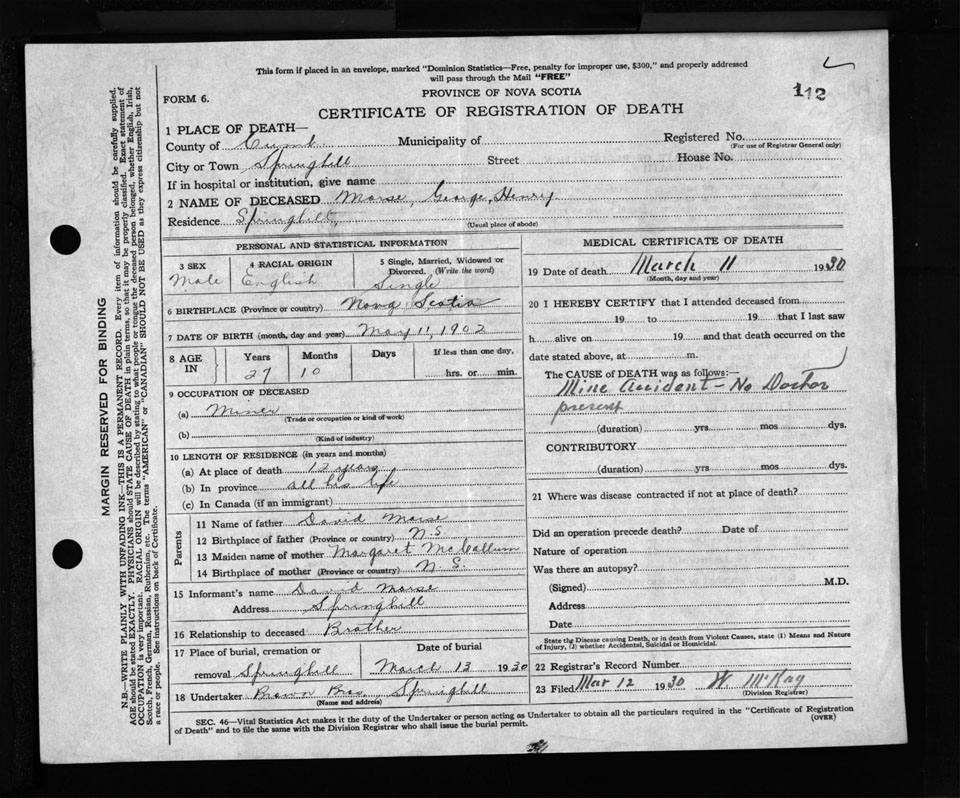 This form if placed in an envelope, marked "Dominion Statistics—Free, penalty for improper use, $300," and properly addressed
will pass through the Mail "FREE"
112
FORM 6.
PROVINCE OF NOVA SCOTIA
CERTIFICATE OF REGISTRATION OF DEATH
1 PLACE OF DEATH—
County of Cumb. Municipality of Registered No.
(For use of Registrar General only)
City or Town Springhill Street House No.
If in hospital or institution, give name
2 NAME OF DECEASED Morse, George, Henry.
Residence Springhill,
(Usual place of abode)
PERSONAL AND STATISTICAL INFORMATION
3 SEX 4 RACIAL ORIGIN 5 Single, Married, Widowed or
Divorced. (Write the word)
Male English Single
6 BIRTHPLACE (Province or country) Nova Scotia
7 DATE OF BIRTH (month, day and year) May 11, 1902
8 AGE IN Years Months Days If less than one day,
27 10 hrs. or min.
9 OCCUPATION OF DECEASED
(a) Miner
(Trade or occupation or kind of work)
(b)
(Kind of industry)
10 LENGTH OF RESIDENCE (in years and months)
(a) At place of death 12 years
(b) In province all his life
(c) In Canada (if an immigrant)
Parents
11 Name of father David Morse
12 Birthplace of father (Province or country) N.S.
13 Maiden name of mother Margaret McCallum
14 Birthplace of mother (Province or country) N.S.
15 Informant's name David Morse
Address Springhill
16 Relationship to deceased Brother
17 Place of burial, cremation or Date of burial
removal Springhill March 13 1930
18 Undertaker Brown Bros Springhill
(Name and address)
MEDICAL CERTIFICATE OF DEATH
19 Date of death March 11 1930
(Month, day and year)
20 I HEREBY CERTIFY that I attended deceased from
19 to 19 that I last saw
h alive on 19 and that death occurred on the
date stated above, at m.
The CAUSE OF DEATH was as follows:—
Mine Accident — No Doctor
present
(duration) yrs. mos dys.
CONTRIBUTORY
(duration) yrs. mos. dys.
21 Where was disease contracted if not at place of death?
Did an operation precede death? Date of
Nature of operation
Was there an autopsy?
(Signed) M.D.
Address
Date
State the Disease causing Death, or in death from Violent Causes, state (1) Means and Nature
of Injury, (2) whether Accidental, Suicidal or Homicidal.
22 Registrar's Record Number
23 Filed Mar 12 1930 W McKay
(Division Registrar)
SEC. 46—Vital Statistics Act makes it the duty of the Undertaker or person acting as Undertaker to obtain all the particulars required in the "Certificate of Registration
of Death" and to file the same with the Division Registrar who shall issue the burial permit.
(OVER)
MARGIN RESERVED FOR BINDING
N.B—WRITE PLAINLY WITH UNFADING INK—THIS IS A PERMANENT RECORD. Every item of information should be carefully supplied.
AGE should be stated EXACTLY. PHYSICIANS should STATE CAUSE OF DEATH in plain terms, so that it may be properly classified. Exact statement of
OCCUPATION is very important. RACIAL ORIGIN will be described by stating to what people or tongue the deceased person belonged, whether English, Irish,
Scotch, French, German, Russian, Ruthenian, etc. The terms "AMERICAN" or "CANADIAN" SHOULD NOT BE USED as they express citizenship but not
a race or people. See instructions on back of Certificate.